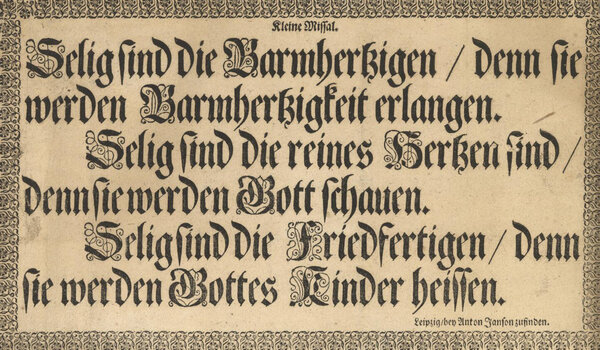 Kleine Missal.
Selig sind die Barmhertzigen / denn sie
werden Barmhertzigkeit erlangen.
Selig sind die reines Hertzen sind /
denn sie werden Gott schauen.
Selig sind die Friedfertigen / denn
sie werden Gottes Kinder heissen.
Leipzig / bey Anton Janson zufinden.